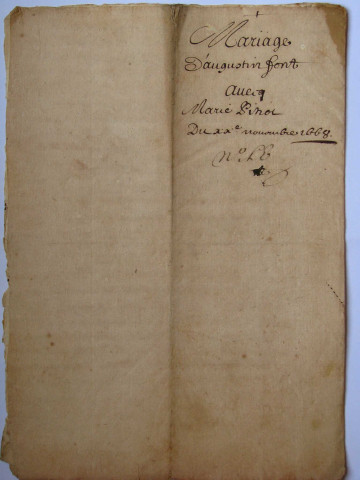 Mariage
D'augustin font
avecq
Marie Pinot
Du xxe novembre 1668.
No.